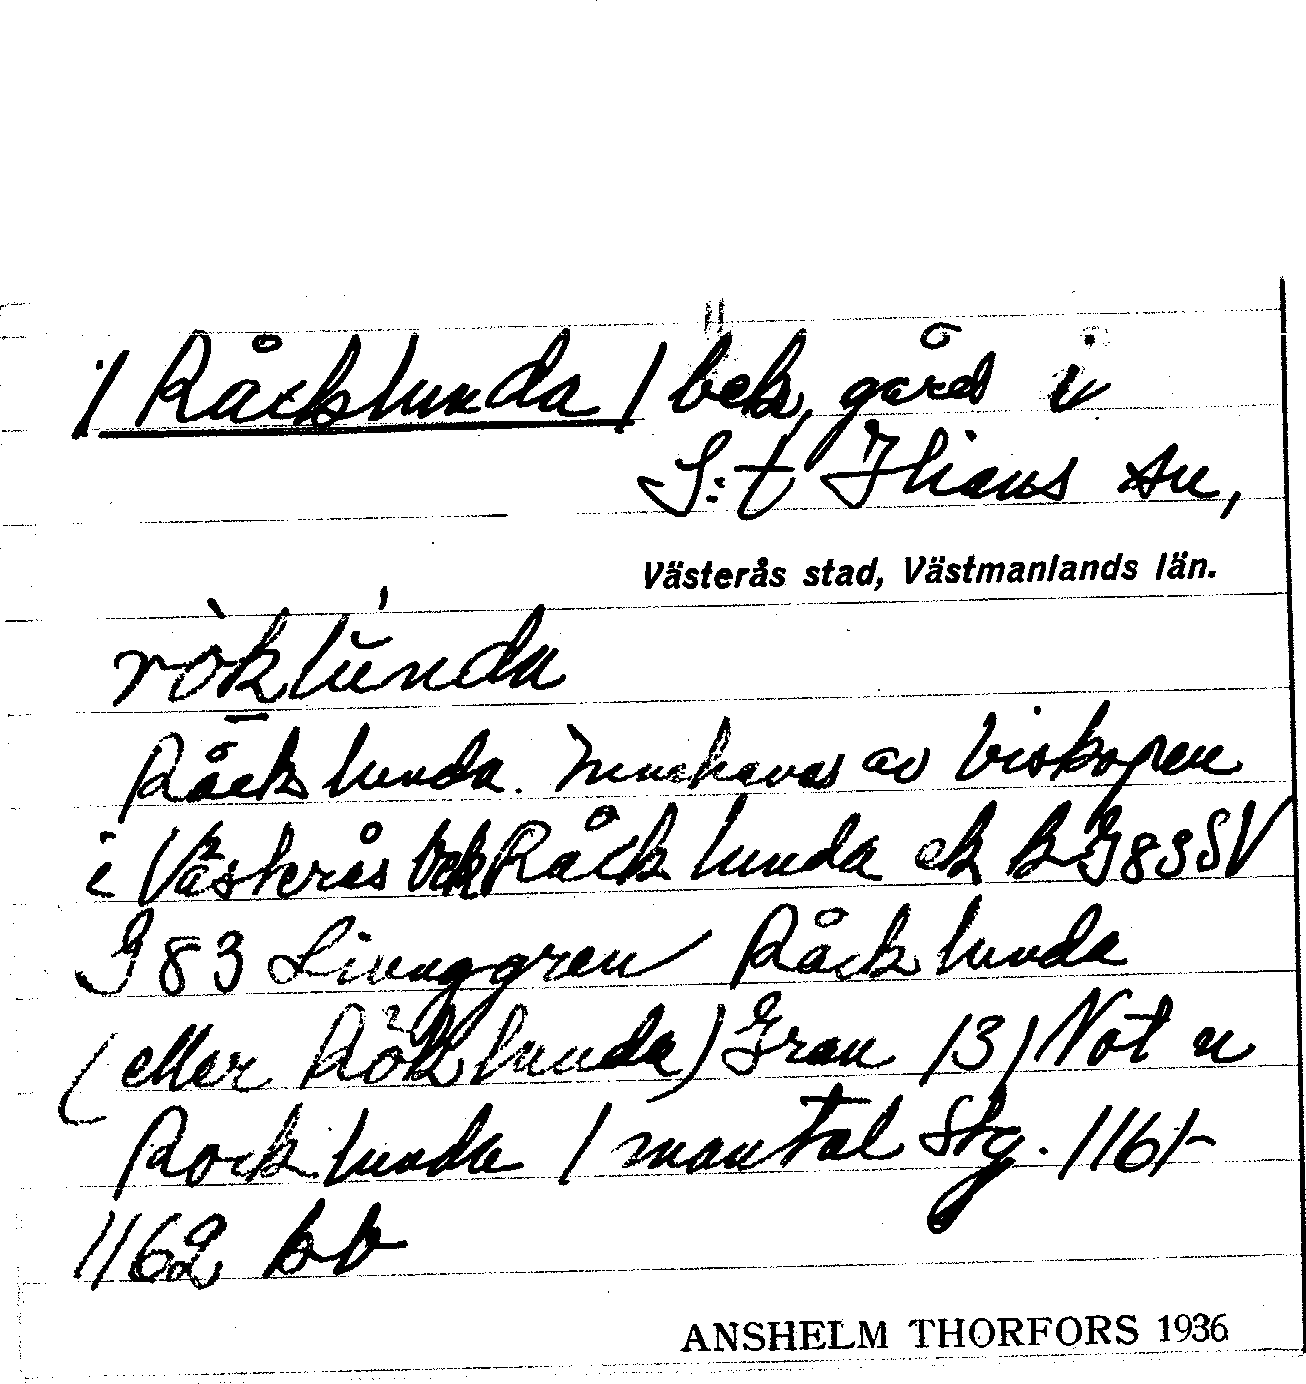 / Råcklunda / bek. gård i
S:t Ilians sn,
Västerås stad, Västmanlands län.
röklunda
Råcklunda. Innehavas av biskopen
i Västerås bek Råcklunda ek k G 83 SV
G 83 Livnggren Råcklunda
(eller Röklunda) Grau 131 Not u
Rocklunda 1 mantal Stg. 1161-
1162 kb
ANSHELM THORFORS 1936